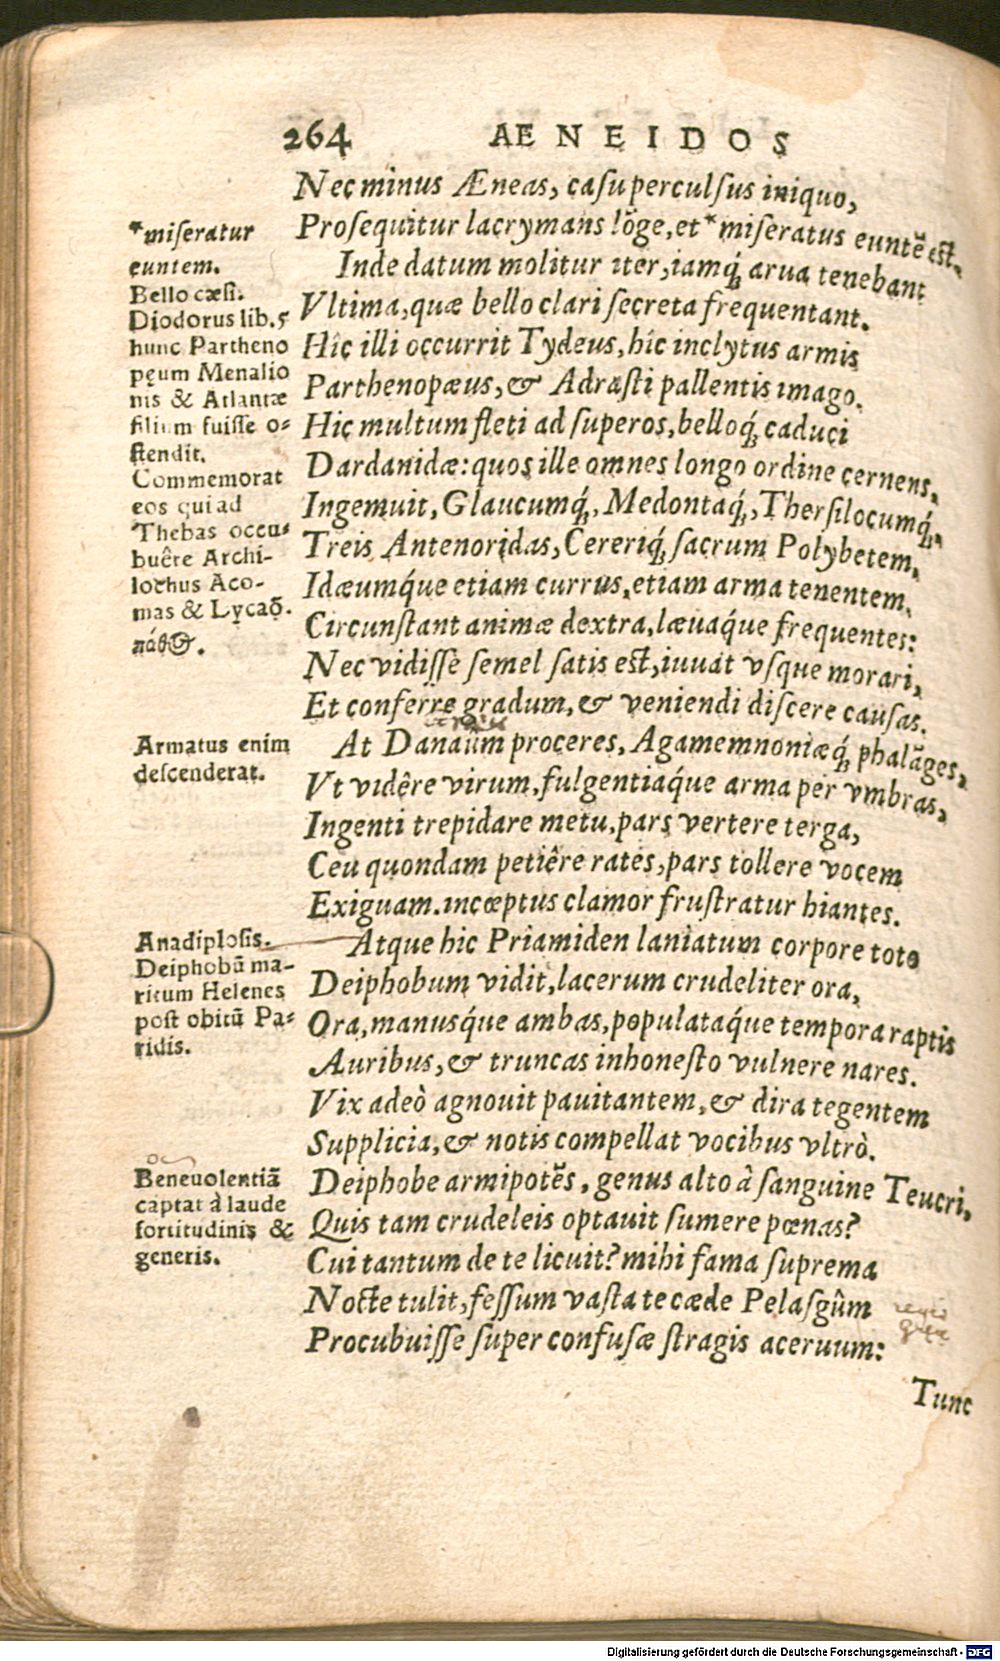 264 AENEIDOS
Nec minus Æneas, casu perculsus iniquo,
Prosequitur lacrymans lōge, et *miseratus euntē est.
Inde datum molitur iter, iamq́; arua tenebant
Vltima, quæ bello clari secreta frequentant.
Hic illi occurrit Tydeus, hic inclytus armis
Parthenopæus, & Adrasti pallentis imago.
Hic multum fleti ad superos, belloq́; caduci
Dardanidæ: quos ille omnes longo ordine cernens,
Ingemuit, Glaucumq́;, Medontaq́;, Thersilocumq́;,
Treis Antenoridas, Cereriq́; sacrum Polybetem,
Idæumq́ue etiam currus, etiam arma tenentem.
Circunstant animæ dextra, læuaq́ue frequentes:
Nec vidisse semel satis est, iuuat vsque morari,
Et conferre gradum, & veniendi discere causas.
At Danaûm proceres, Agamemnoniæq́; phalāges,
Vt vidêre virum, fulgentiaq́ue arma per vmbras,
Ingenti trepidare metu, pars vertere terga,
Ceu quondam petiêre rates, pars tollere vocem
Exiguam. incœptus clamor frustratur hiantes.
Atque hic Priamiden laniatum corpore toto
Deiphobum vidit, lacerum crudeliter ora,
Ora, manusq́ue ambas, populataq́ue tempora raptis
Auribus, & truncas inhonesto vulnere nares.
Vix adeò agnouit pauitantem, & dira tegentem
Supplicia, & notis compellat vocibus vltrò.
Deiphobe armipotēs, genus alto à sanguine Teucri,
Quis tam crudeleis optauit sumere pœnas?
Cui tantum de te licuit? mihi fama suprema
Nocte tulit, fessum vasta te cæde Pelasgûm
Procubuisse super confusæ stragis aceruum:
Tunc
*miseratur
euntem.
Bello cæsi.
Diodorus lib. 5
hunc Partheno
pęum Menalio
nis & Atlantæ
filium fuisse o-
stendit.
Commemorat
eos qui ad
Thebas occu-
buêre Archi-
lochus Aco-
mas & Lycaō.
Armatus enim
descenderat.
Anadiplosis.
Deiphobū ma-
ritum Helenes
post obitū Pa-
ridis.
Beneuolentiā
captat à laude
fortitudinis &
generis.
Digitalisierung gefördert durch die Deutsche Forschungsgemeinschaft - DFG